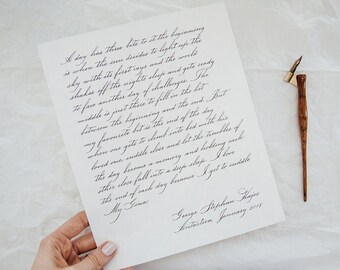 A day has three bits to it the beginning
is when the sun decides to light up the
sky with its first rays and the world
shakes off the nights sleep and gets ready
to face another day of challenges. The
middle is just there to fill in the bit
between the beginning and the end. But
my favourite bit is the end of the day
when one gets to climb into bed with his
loved one, cuddle close and let the troubles of
the day become a memory and holding each
other close fall into a deep sleep. I love
the end of each day because I get to cuddle
My Gina.
George Stephen
January 2018